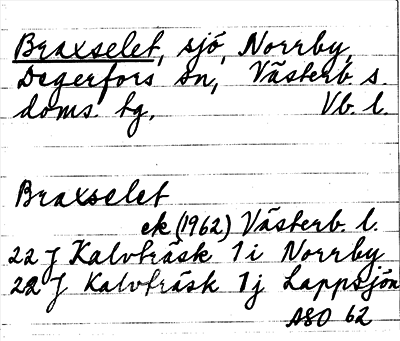 Braxselet, sjö, Norrby,
Degerfors sn, Västerb. s.
doms. tg. Vb. l.
Braxselet
ek (1962) Västerb. l.
22 J Kalvträsk 1 i Norrby
22 J Kalvträsk 1 j Lappsjön
ASO 62